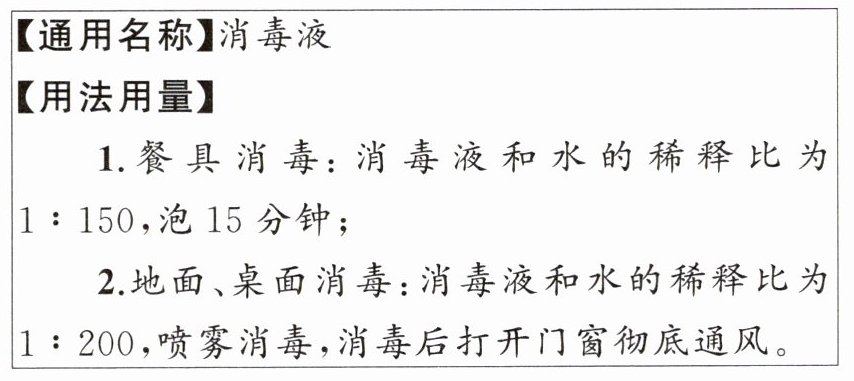 【通用名称】消毒液
【用法用量】
1.餐具消毒:消毒液和水的稀释比为
1∶150,泡 15 分钟;
2.地面、桌面消毒:消毒液和水的稀释比为
1∶200,喷雾消毒,消毒后打开门窗彻底通风。